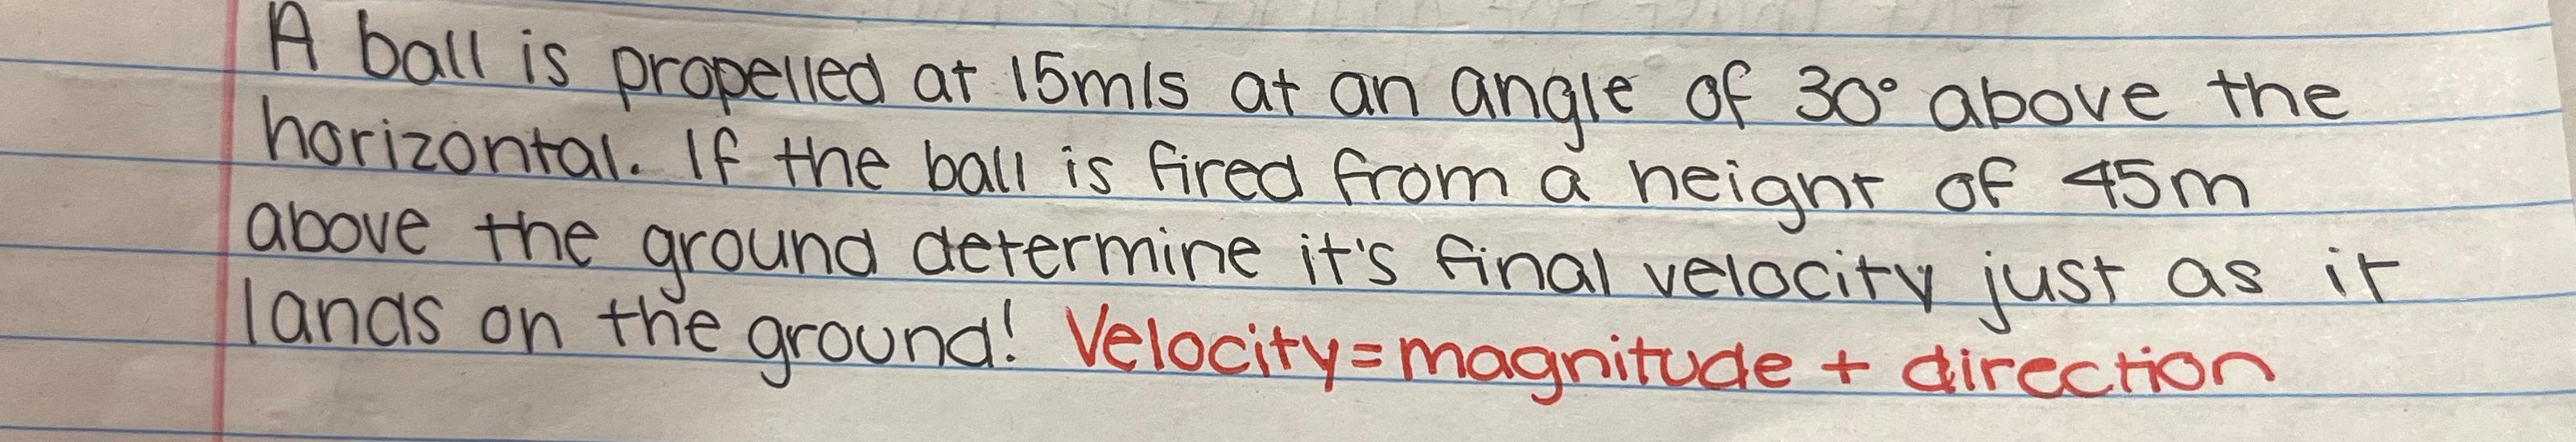 A ball is propelled at 15m/s at an angle of 30° above the
horizontal. If the ball is fired from a height of 45m
above the ground determine it's final velocity just as it
lands on the ground! Velocity=magnitude + direction